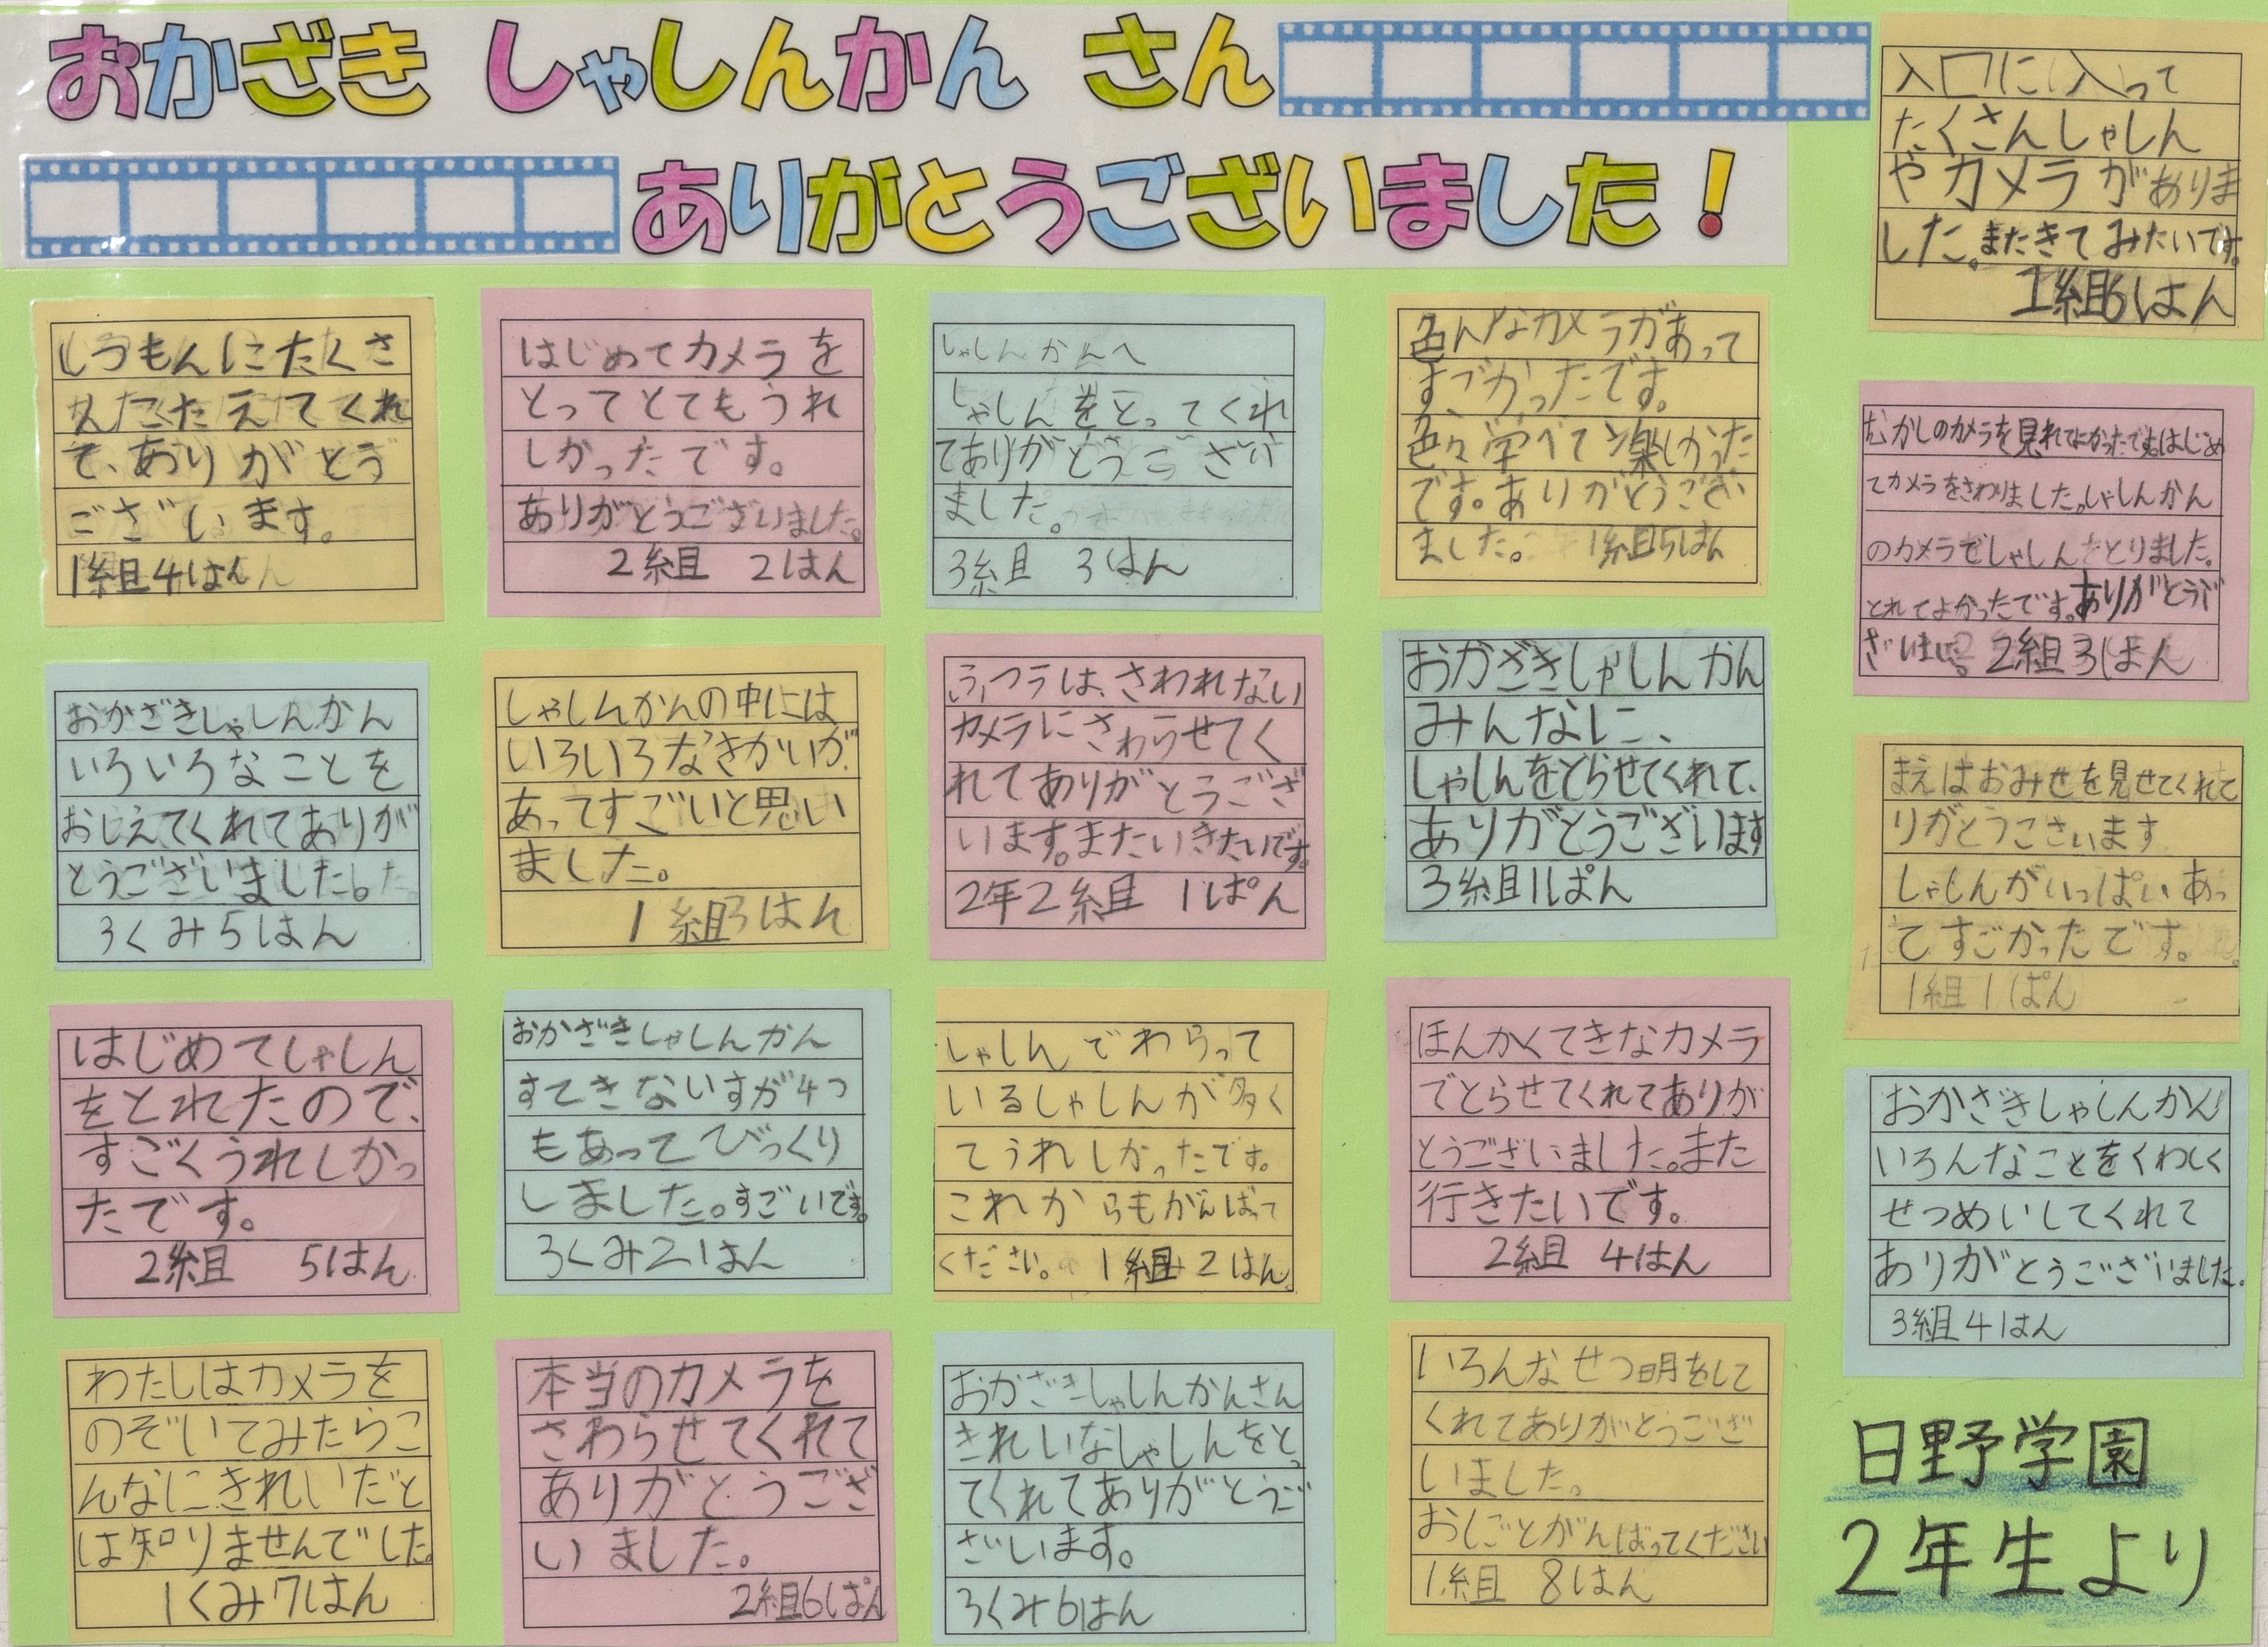 おかざき しゃしんかん さん
ありがとうございました！
入口に入って
たくさんしゃしん
やカメラがありま
した。またきてみたいです。
1組6はん
しつもんにたくさ
んこたえてくれ
て、ありがとう
ございます。
1組4はん
はじめてカメラを
とってとてもうれ
しかったです。
ありがとうございました。
2組 2はん
しゃしんかんへ
しゃしんをとってくれ
てありがとうござい
ました。
3組 3はん
色んなカメラがあって
すごかったです。
色々学べて楽しかった
です。ありがとうござい
ました。 1組5はん
むかしのカメラを見れてよかったです。はじめ
てカメラをさわりました。しゃしんかん
のカメラでしゃしんをとりました。
とれてよかったです。ありがとうご
ざいました。 2組3はん
おかざきしゃしんかん
いろいろなことを
おしえてくれてありが
とうございました。
3くみ5はん
しゃしんかんの中には
いろいろなきかいが
あってすごいと思い
ました。
1組3はん
ふつうは、さわれない
カメラにさわらせてく
れてありがとうござ
います。またいきたいです。
2年2組 1ぱん
おかざきしゃしんかん
みんなに、
しゃしんをとらせてくれて、
ありがとうございます
3組1ぱん
まえはおみせを見せてくれて
りがとうこさいます
しゃしんがいっぱいあっ
てすごかったです。
1組1ぱん
はじめてしゃしん
をとれたので、
すごくうれしかっ
たです。
2組 5はん
おかざきしゃしんかん
すてきないすが4つ
もあってびっくり
しました。すごいです。
3くみ2はん
しゃしんでわらって
いるしゃしんが多く
てうれしかったです。
これからもがんばって
ください。 1組2はん
ほんかくてきなカメラ
でとらせてくれてありが
とうございました。また
行きたいです。
2組 4はん
おかざきしゃしんかん
いろんなことをくわしく
せつめいしてくれて
ありがとうございました。
3組4はん
わたしはカメラを
のぞいてみたらこ
んなにきれいだと
は知りませんでした。
1くみ7はん
本当のカメラを
さわらせてくれて
ありがとうござ
いました。
2組6ぱん
おかざきしゃしんかんさん
きれいなしゃしんをとっ
てくれてありがとうご
ざいます。
3くみ6はん
いろんなせつ明をして
くれてありがとうござ
いました。
おしごとがんばってください
1組 8はん
日野学園
2年生より